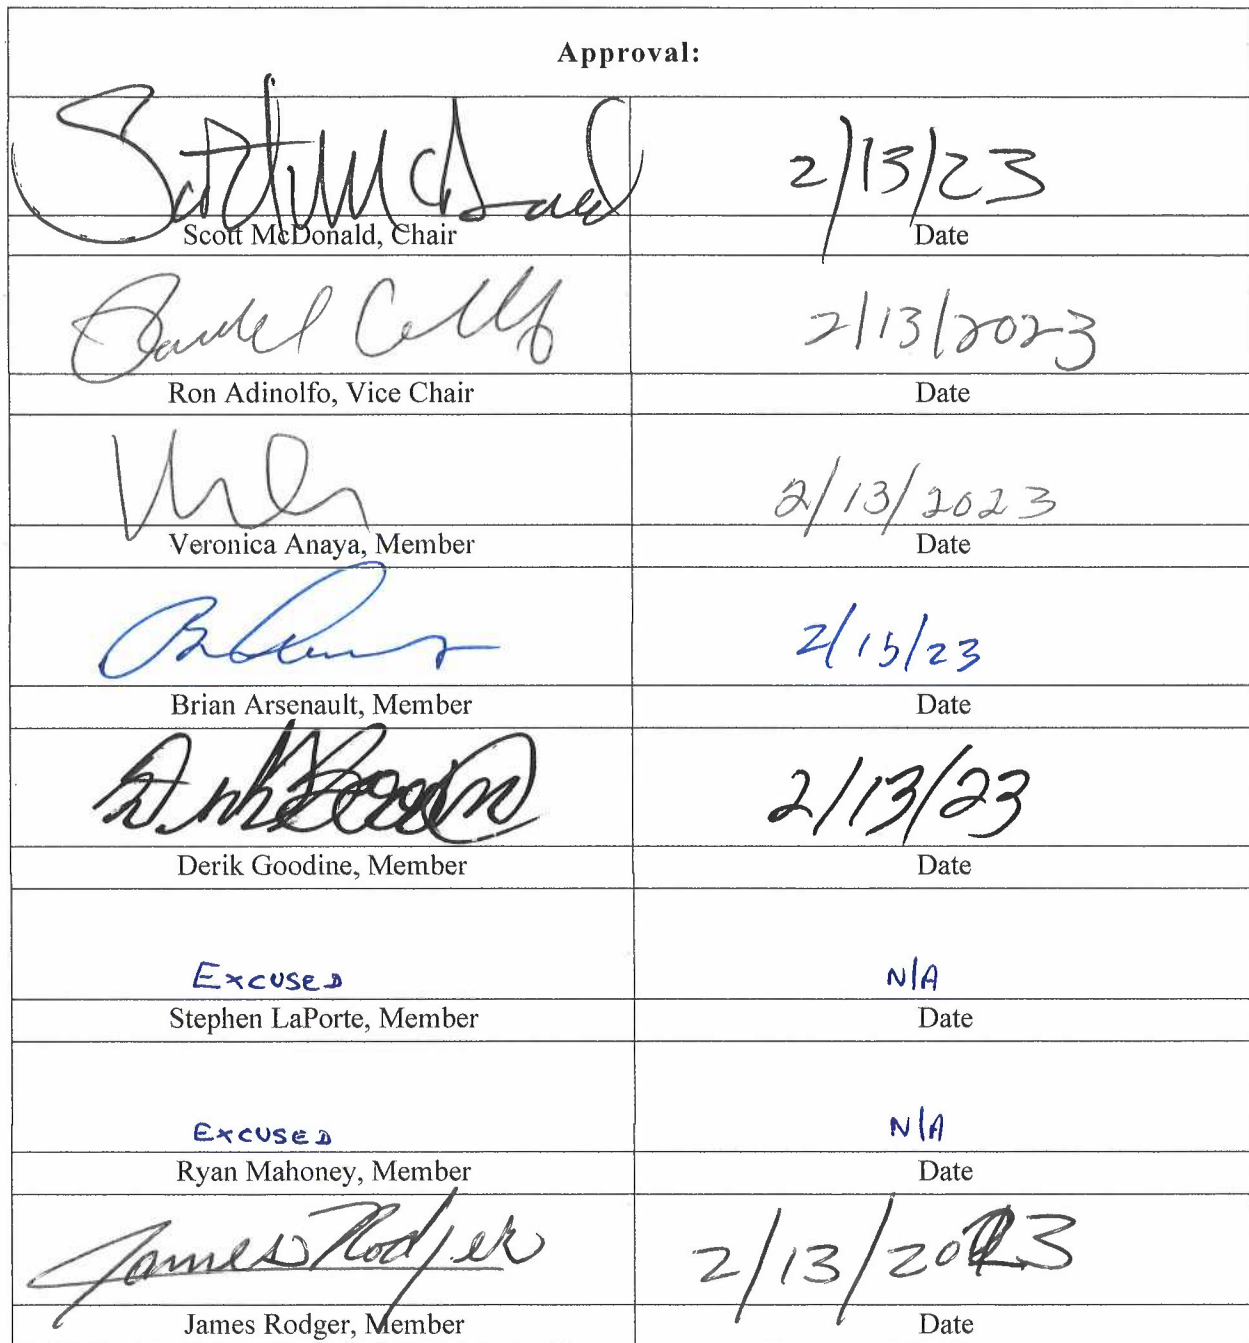 Approval:
Scott McDonald 2/13/23
Scott McDonald, Chair Date
2/13/2023
Ron Adinolfo, Vice Chair Date
2/13/2023
Veronica Anaya, Member Date
2/15/23
Brian Arsenault, Member Date
Derik Goodine 2/13/23
Derik Goodine, Member Date
Excused N/A
Stephen LaPorte, Member Date
Excused N/A
Ryan Mahoney, Member Date
James Rodger 2/13/2023
James Rodger, Member Date